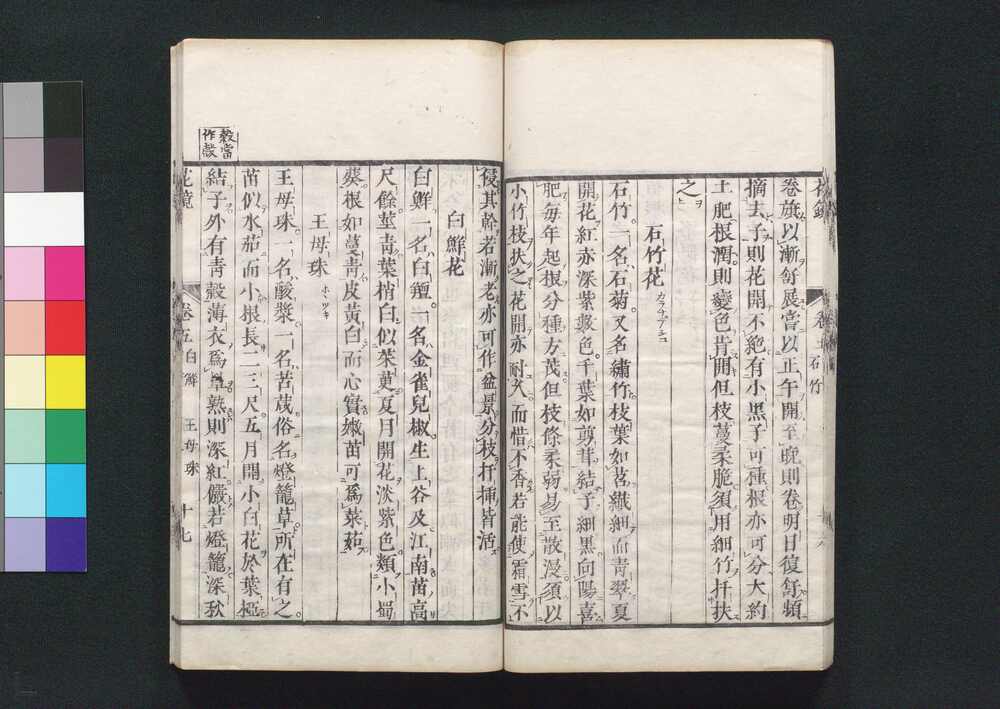 卷旗以漸舒展嘗以正午開至晚則卷明日復舒頻
摘去子則花開不絶有小黑子可種根亦可分大約
土肥根潤則變色皆開但枝蔓柔脆須用細竹扦扶
之
石竹花
石竹一名石菊又名繡竹枝葉如苕纖細而青翠夏
開花紅赤深紫數色千葉如剪茸結子細黑向陽喜
肥每年起根分種方茂但枝條柔弱易至散漫須以
小竹枝扶之花開亦耐久而惜不香若能使霜雪不
石竹
侵其幹若漸老亦可作盆景分枝扦插皆活
白鮮花
白鮮一名白羶一名金雀兒椒生上谷及江南苗高
尺餘莖青葉梢白似茱萸夏月開花淡紫色類小蜀
葵根如蔓青皮黃白而心實嫩苗可爲菜茹
王母珠 ホヅキ
王母珠一名酸漿一名苦蒇俗名燈籠草所在有之
苗似水茄而小根長二三尺五月開小白花於葉椏
結子外有青殼薄衣爲罩熟則深紅儼若燈籠深秋
花鏡 卷五 白鮮 王母珠 十七
穀當
作殼